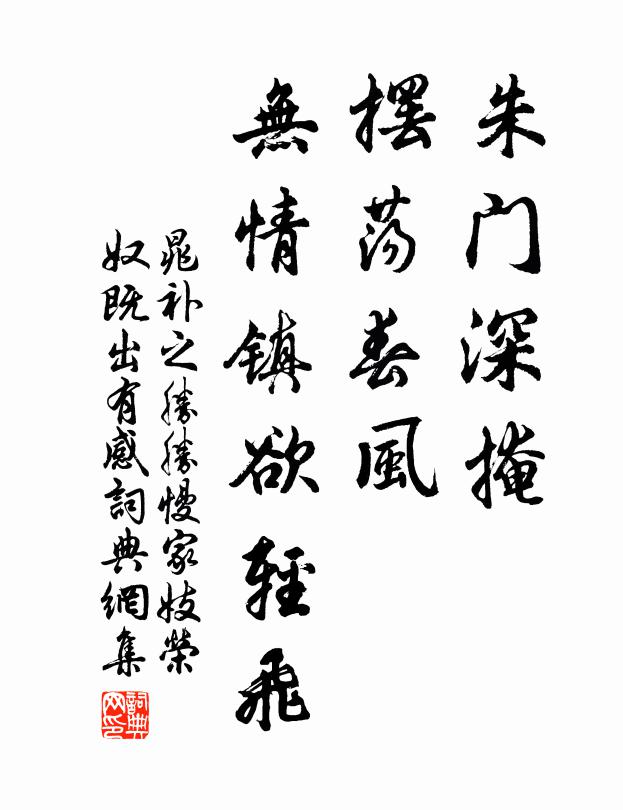 朱门深掩
摆荡春風
無情镇欲輕飛
晁补之勝勝慢家妓榮
奴既出有感詞典網集
詞典
网印